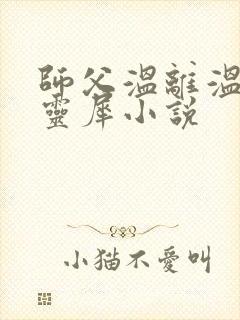 師父溫離溫
靈犀小說
小貓不愛叫